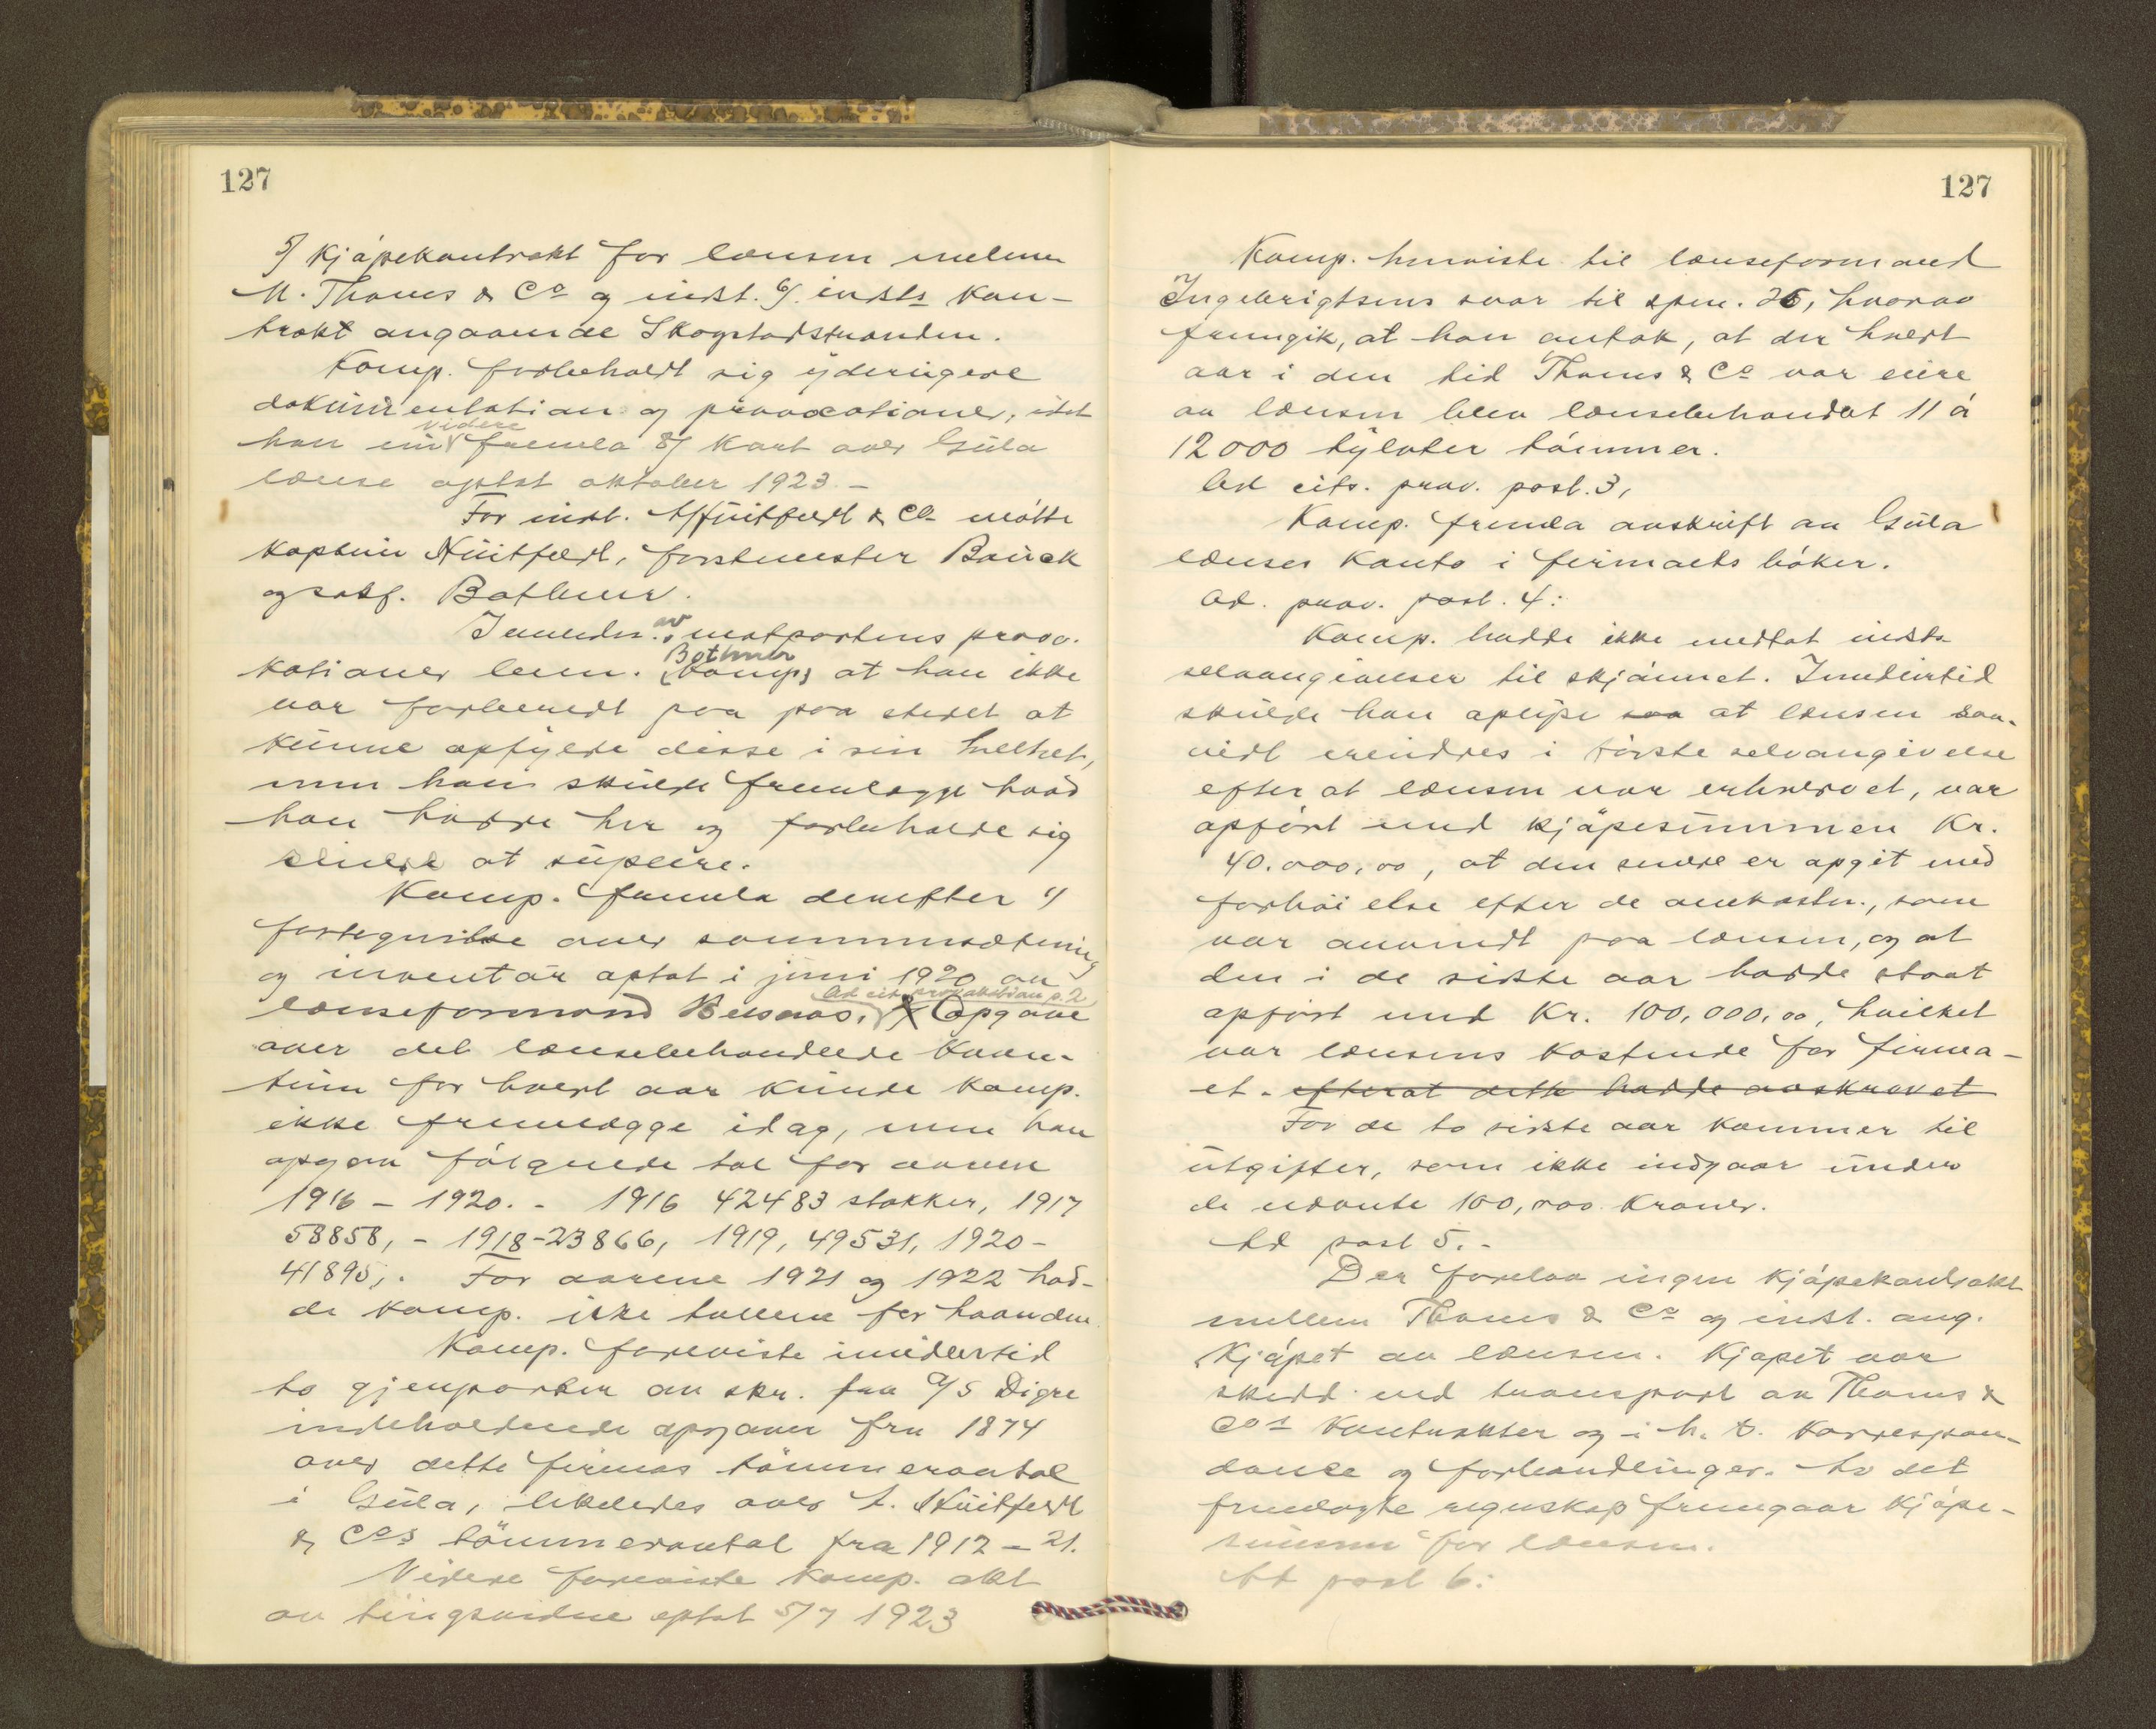 127
5/ Kjøpekontrakt for lænsen mellem
M. Thams & Co og indst. 6/ indsts kon-
trakt angaaende Skogstadstranden.
Komp. forbeholdt sig yderligere
dokumentation og provocationer, idet
han videre fremla 8/ Kart over Gula
lænse optat oktober 1923.-
For indst. A. Huitfeldt & Co møtte
kaptein Huitfeldt, forstmester Bauck
og sakf. Bothner.
I anledn. av motpartens provo-
kationer bem. (komp) Bothner at han ikke
var forberedt paa paa stedet at
kunne opfylde disse i sin helhet,
men han skulde fremlægge hvad
han hadde her og forbeholde sig
senere at suplere.
Komp. fremla derefter 1/
fortegnelse over sammensætning
og inventar optat i juni 1920 av
lænseformand Ad cit. provokation p. 2 Opgave
over det lænsebehandlede kvan-
tum for hvert aar kunde komp.
ikke fremlægge idag, men han
opgav følgende tal for aarene
1916 - 1920. - 1916 42483 stokker, 1917
58858, - 1918-23866, 1919, 49531, 1920-
41895,. For aarene 1921 og 1922 had-
de komp. ikke tallene for haanden.
Komp. foreviste imidlertid
to gjenparter av skr. fra A/S Digre
indeholdende opgaver fra 1874
over dette firmas tømmerantal
i Gula, likeledes over A. Huitfeldt
& Cos tømmerantal fra 1912 - 21.
Videre foreviste komp. akt
av tingsvidne optat 5/7 1923
127
Komp. henviste til lænseformand
Ingebrigtsens svar til spm. 26, hvorav
fremgik, at han antok, at der hvert
aar i den tid Thams & Co var eiere
av lænsen blev lænsebehandlet 11 à
12000 tylvter tømmer.
Ad cits. prov. post. 3,
Komp. fremla avskrift av Gula
lænses konto i firmaets bøker.
Ad. prov. post. 4:
Komp. hadde ikke medtat indsts
selvangivelser til skjønnet. Imidlertid
skulde han oplyse at lænsen saa-
vidt erindres i første selvangivelse
efter at lænsen var erhvervet, var
opført med kjøpesummen Kr.
40.000,00, at den senere er opgit med
forhøielse efter de omkostn., som
var anvendt paa lænsen, og at
den i de sidste aar hadde staat
opført med Kr. 100,000,00, hvilket
var lænsens kostende for firma-
et. efterat dette hadde avskrevet
For de to sidste aar kommer til
utgifter, som ikke indgaar under
de nævnte 100,000 kroner.
Ad post 5.-
Der forelaa ingen kjøpekontrakt
mellem Thams & Co og indst. ang.
kjøpet av lænsen. Kjøpet var
skedd ved transport av Thams &
Cos kontrakter og i h. t. korrespon-
dance og forhandlinger. Av det
fremlagte regnskap fremgaar kjøpe-
summen for lænsen.
Ad post 6: